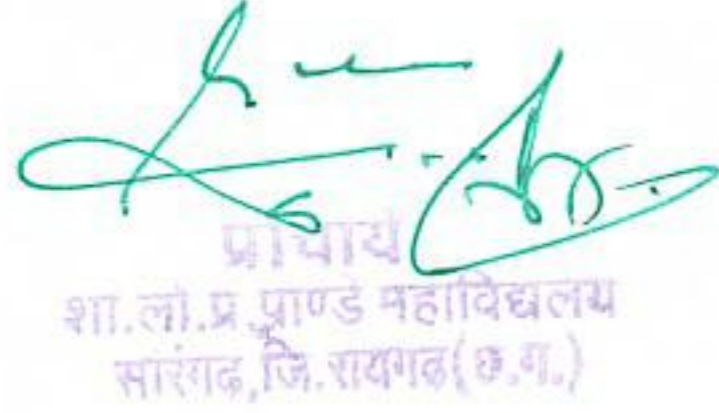 प्राचार्य
शा.ला.प्र.पाण्डे महाविद्यालय
सारंगढ़,जि.रायगढ़(छ.ग.)